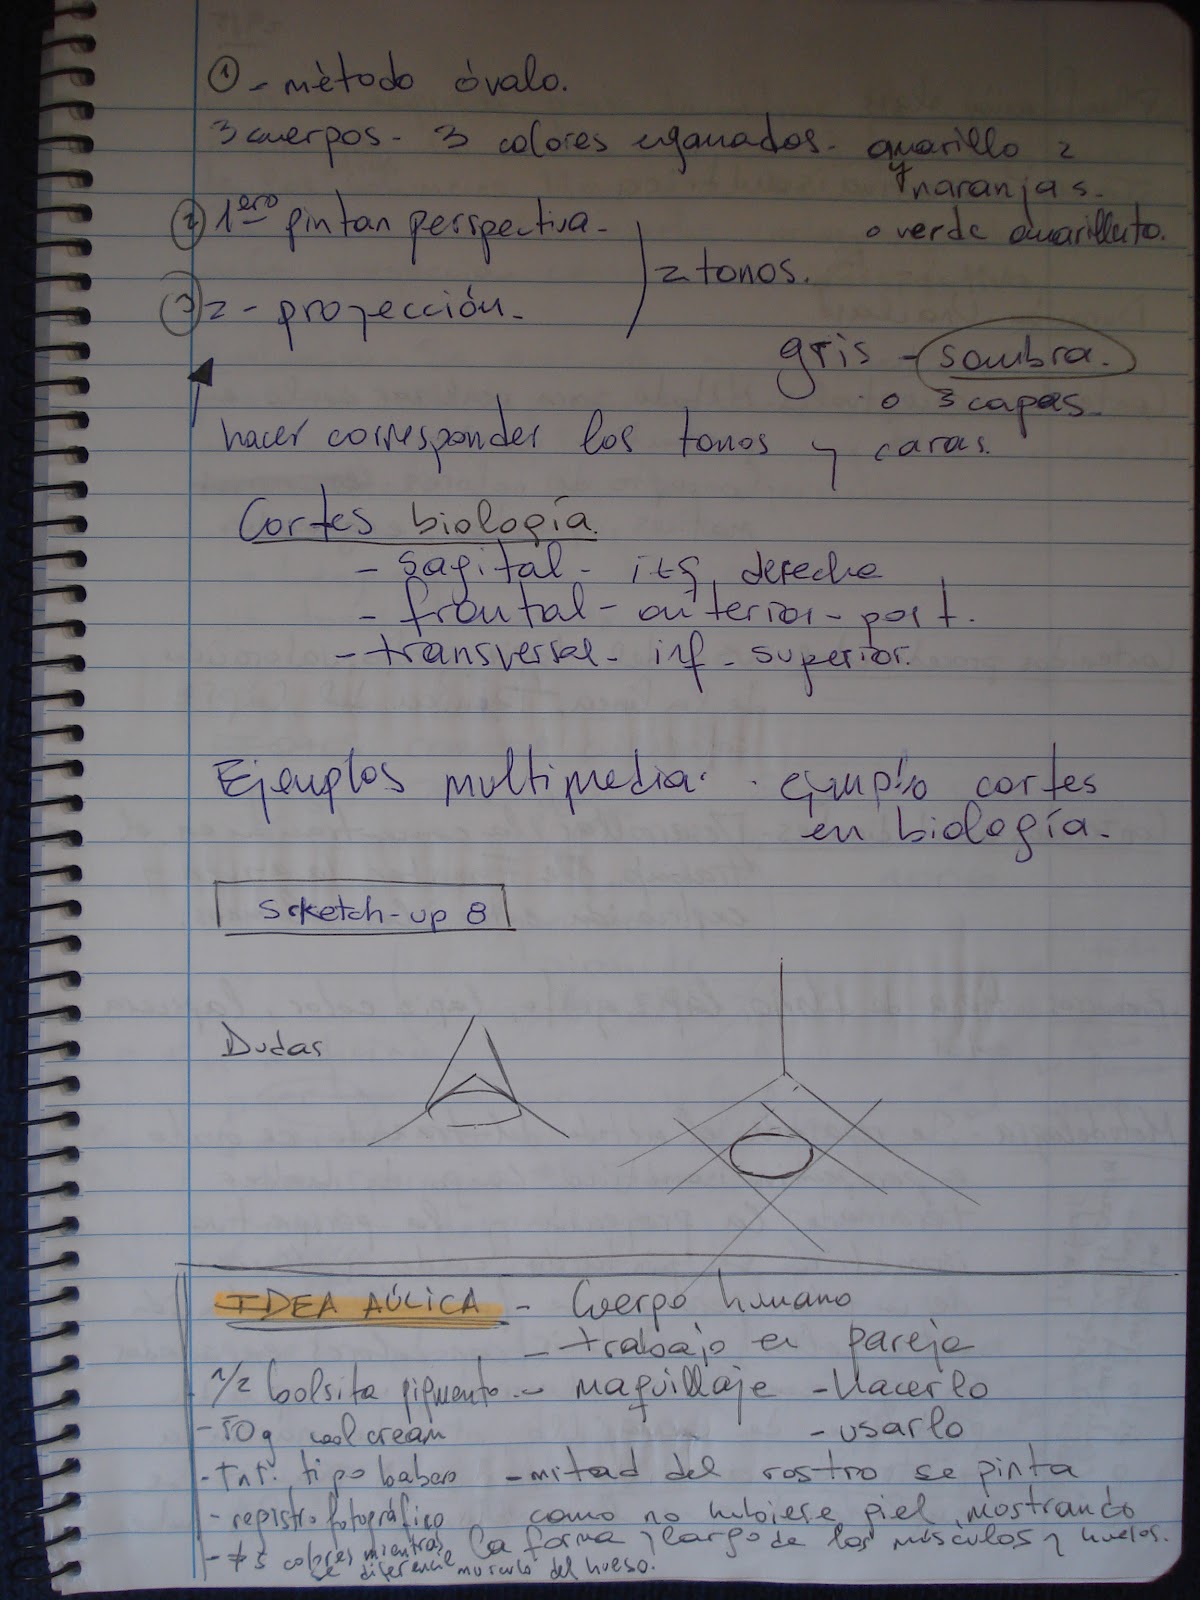 ① - mètodo óvalo.
3 cuerpos - 3 colores eganados - amarillo 2
y naranjas.
o verde amarillento.
② 1ero pintan perspectiva -
2 tonos.
③ 2 - proyección -
gris - sombra.
o 3 capas -
hacer corresponder los tonos y caras.
Cortes biología.
- sagital - izq, derecha
- frontal - anterior - post.
- transversal - inf - superior.
Ejemplos multimedia. . ejemplo cortes
en biología.
Scketch-up 8
Dudas
IDEA AÚLICA - Cuerpo humano
- trabajo en pareja
1/2 bolsita pigmento - - maquillaje - Hacerlo
- 50g cool cream - usarlo
- T.n.T. tipo babero - mitad del rostro se pinta
- registro fotográfico como no hubiese piel, mostrando
la forma y largo de los músculos y huesos.
- ≠s colores mientras
se diferencie musculo del hueso.